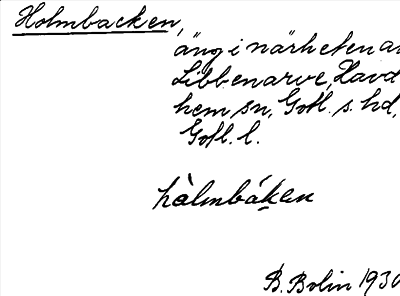 Holmbacken,
äng i närheten av
Libbenarve, Havd
hem sn, Gotl. s. hd,
Gotl. l.
hàlmbákan
B. Bolin 1930